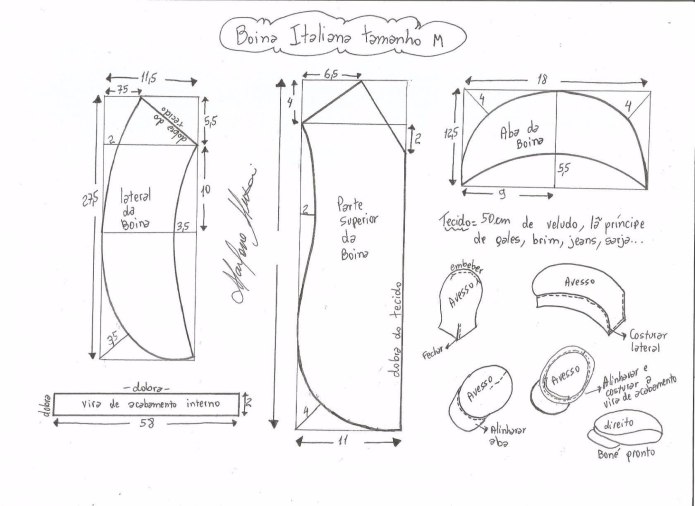 Boina Italiana tamanho M
11,5
7,5
dobra do
tecido
5,5
2
10
27,5
lateral
da
Boina
3,5
3,5
- dobra -
dobra
vira de acabamento interno
58
6,5
4
2
2
Parte
Superior
da
Boina
dobra do tecido
4
11
18
4
4
12,5
Aba da
Boina
5,5
9
Tecido= 50cm de veludo, lã príncipe
de gales, brim, jeans, sarja...
embeber
Avesso
Fechar
Avesso
Costurar
lateral
Avesso
Alinhavar
aba
Avesso
Alinhavar e
costurar a
vira de acabamento
direito
Boné pronto